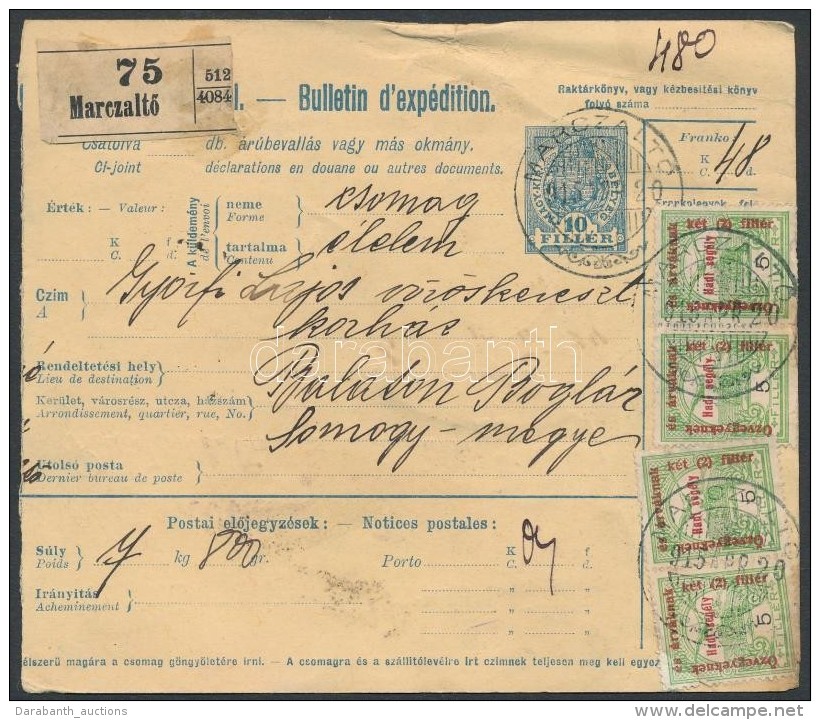 480
75
Marczaltő
512
4084
l. — Bulletin d'expédition.
Raktárkönyv, vagy kézbesitési könyv
folyó száma
Csatolva db. árúbevallás vagy más okmány.
Ci-joint déclarations en douane ou autres documents.
Franko:
K
C. 48 f
d.
Érték: — Valeur:
K f
C. d.
A küldemény
de l'envoi
neme
Forme csomag
tartalma
Contenu élelem
10
FILLÉR
MARCZALTŐ
Czím
A Győrfi Lajos vöröskereszt
korház
Rendeltetési hely
Lieu de destination Balaton Boglár
Kerület, városrész, utcza, házszám
Arrondissement, quartier, rue, No. Somogy-megye
Utolsó posta
Dernier bureau de poste
Postai előjegyzések: — Notices postales:
Súly
Poids 7 kg 800 gr.
Porto K
C. f
d.
Irányítás
Acheminement
élszerű magára a csomag göngyöletére irni. — A csomagra és a szállitólevélre irt czimnek teljesen meg kell egyez
Özvegyeknek és árváknak két (2) fillér
Hadi segély
5
FILLÉR
Özvegyeknek és árváknak két (2) fillér
Hadi segély
5
FILLÉR
Özvegyeknek és árváknak két (2) fillér
Hadi segély
5
FILLÉR
Özvegyeknek és árváknak két (2) fillér
Hadi segély
5
FILLÉR
darabanth
Darabanth_auctions
delcampe.net